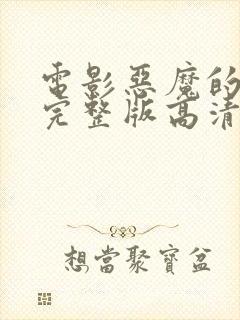 電影惡魔的
完整版高清
想當聚寶盆